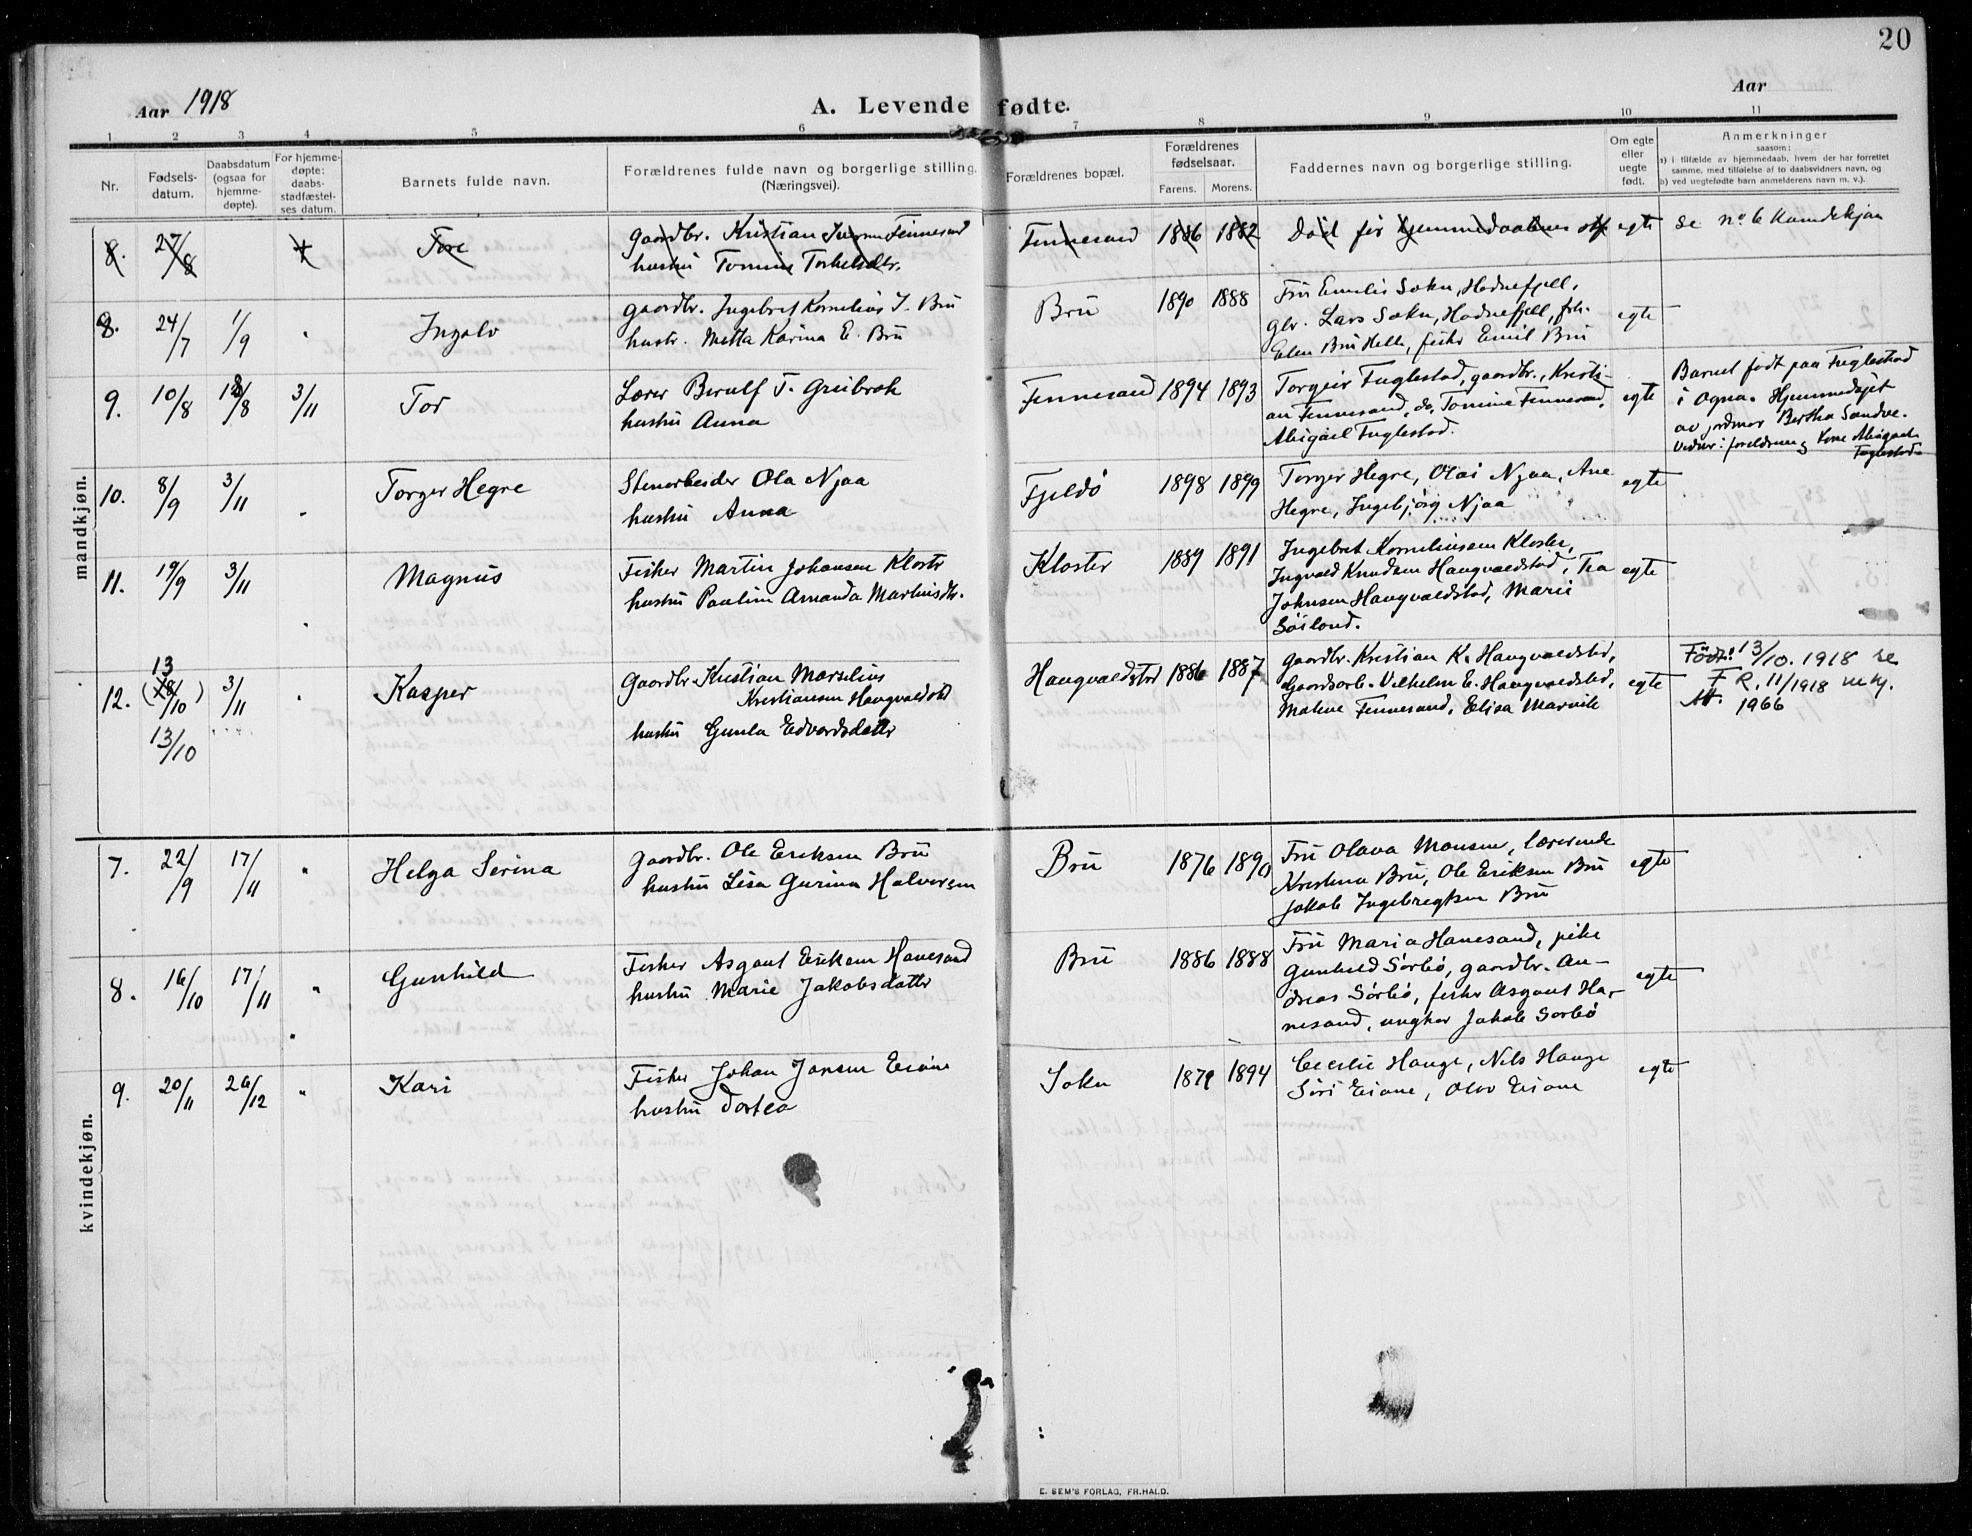 20
Aar 1918
A. Levende fødte.
Aar
1 2 3 4 5 6 7 8 9 10 11
Nr.
Fødsels-
datum.
Daabsdatum
(ogsaa for
hjemme-
døpte).
For hjemme-
døpte:
daabs-
stadfæstel-
ses datum.
Barnets fulde navn.
Forældrenes fulde navn og borgerlige stilling.
(Næringsvei).
Forældrenes bopæl.
Forældrenes
fødselsaar.
Farens. Morens.
Faddernes navn og borgerlige stilling.
Om egte
eller
uegte
født.
Anmerkninger
saasom:
a) i tilfælde av hjemmedaab, hvem der har forrettet
samme, med tilføielse af to daabsvidners navn, og
b) ved uegtefødte barn anmelderens navn m. v.).
mandkjøn.
8. 27/8 Tore
gaardbr. Kristian Fennesand
hustru Tomine Torkelsdtr.
Fennesand 1886 1882
Død før hjemmedaabens egte
se no 6 Kvindekjøn
8. 24/7 1/9 " Ingolv
gaardbr. Ingebret Kornelius I. Bru
hustr. Metta Karina E. Bru
Bru 1890 1888
Fru Emilie Sokn, Hodnefjell,
gbr. Lars Sokn, Hodnefjell, frk.
Elen Bru Helle, fisker Emil Bru
egte
9. 10/8 18/8 3/11 Tor
Lærer Berulf T. Grúbrok
hustru Anna
Fennesand 1894 1893
Torgeir Fuglestad, gaardbr., Kristi-
an Fennesand, do, Tomine Fennesand,
Abigael Fuglestad.
egte
Barnet født paa Fuglestad
i Ogna. Hjemmedøpt
av jordmor Bertha Sandve.
Vidner: foreldrene og Kone Abigael
Fuglestad
10. 8/9 3/11 " Torger Hegre
Stenarbeider Ola Njaa
hustru Anna
Fjeldø 1898 1899
Torger Hegre, Olai Njaa, Ane
Hegre, Ingebjørg Njaa
egte
11. 19/9 3/11 " Magnus
Fisker Martin Johansen Kloster
hustru Pauline Amanda Martinsdtr.
Kloster 1889 1891
Ingebret Korneliussen Kloster,
Ingvald Knudsen Haugvaldstad, Tea
Johnsen Haugvaldstad, Marie
Søiland.
egte
12. 13 (18/10) 13/10 3/11 " Kasper
Gaardbr. Kristian Marselius
Kristiansen Haugvaldstad
hustru Gunla Edvardsdatter
Haugvaldstad 1886 1887
gaardbr. Kristian K. Haugvaldstad,
Gaardsarb. Vilhelm E. Haugvaldstad,
Malene Fennesand, Elisa Marvik
egte
Født: 13/10. 1918 se
F R. 11/1918
1966
kvindekjøn.
7. 22/9 17/11 " Helga Serina
Gaardbr. Ole Eriksen Bru
hustru Lisa Gurina Halvorsen
Bru 1876 1890
Fru Olava Monsen, lærerinde
Kristina Bru, Ole Eriksen Bru
Jakob Ingebregtsen Bru
egte
8. 16/10 17/11 " Gunhild
Fisker Asgaut Eriksen Hanesand
hustru Marie Jakobsdatter
Bru 1886 1888
Fru Maria Hanesand, pike
Gunhild Sørbø, gaardbr. An-
dreas Sørbø, fisker Asgaut Ha-
nesand, ungkar Jakob Sørbø
egte
9. 20/11 26/12 " Kari
Fisker Johan Jansen Eiane
hustru Dortea
Sokn 1879 1894
Cecilie Hauge, Nils Hauge
Siri Eiane, Olav Eiane
egte
E. SEM'S FORLAG, FR.HALD.